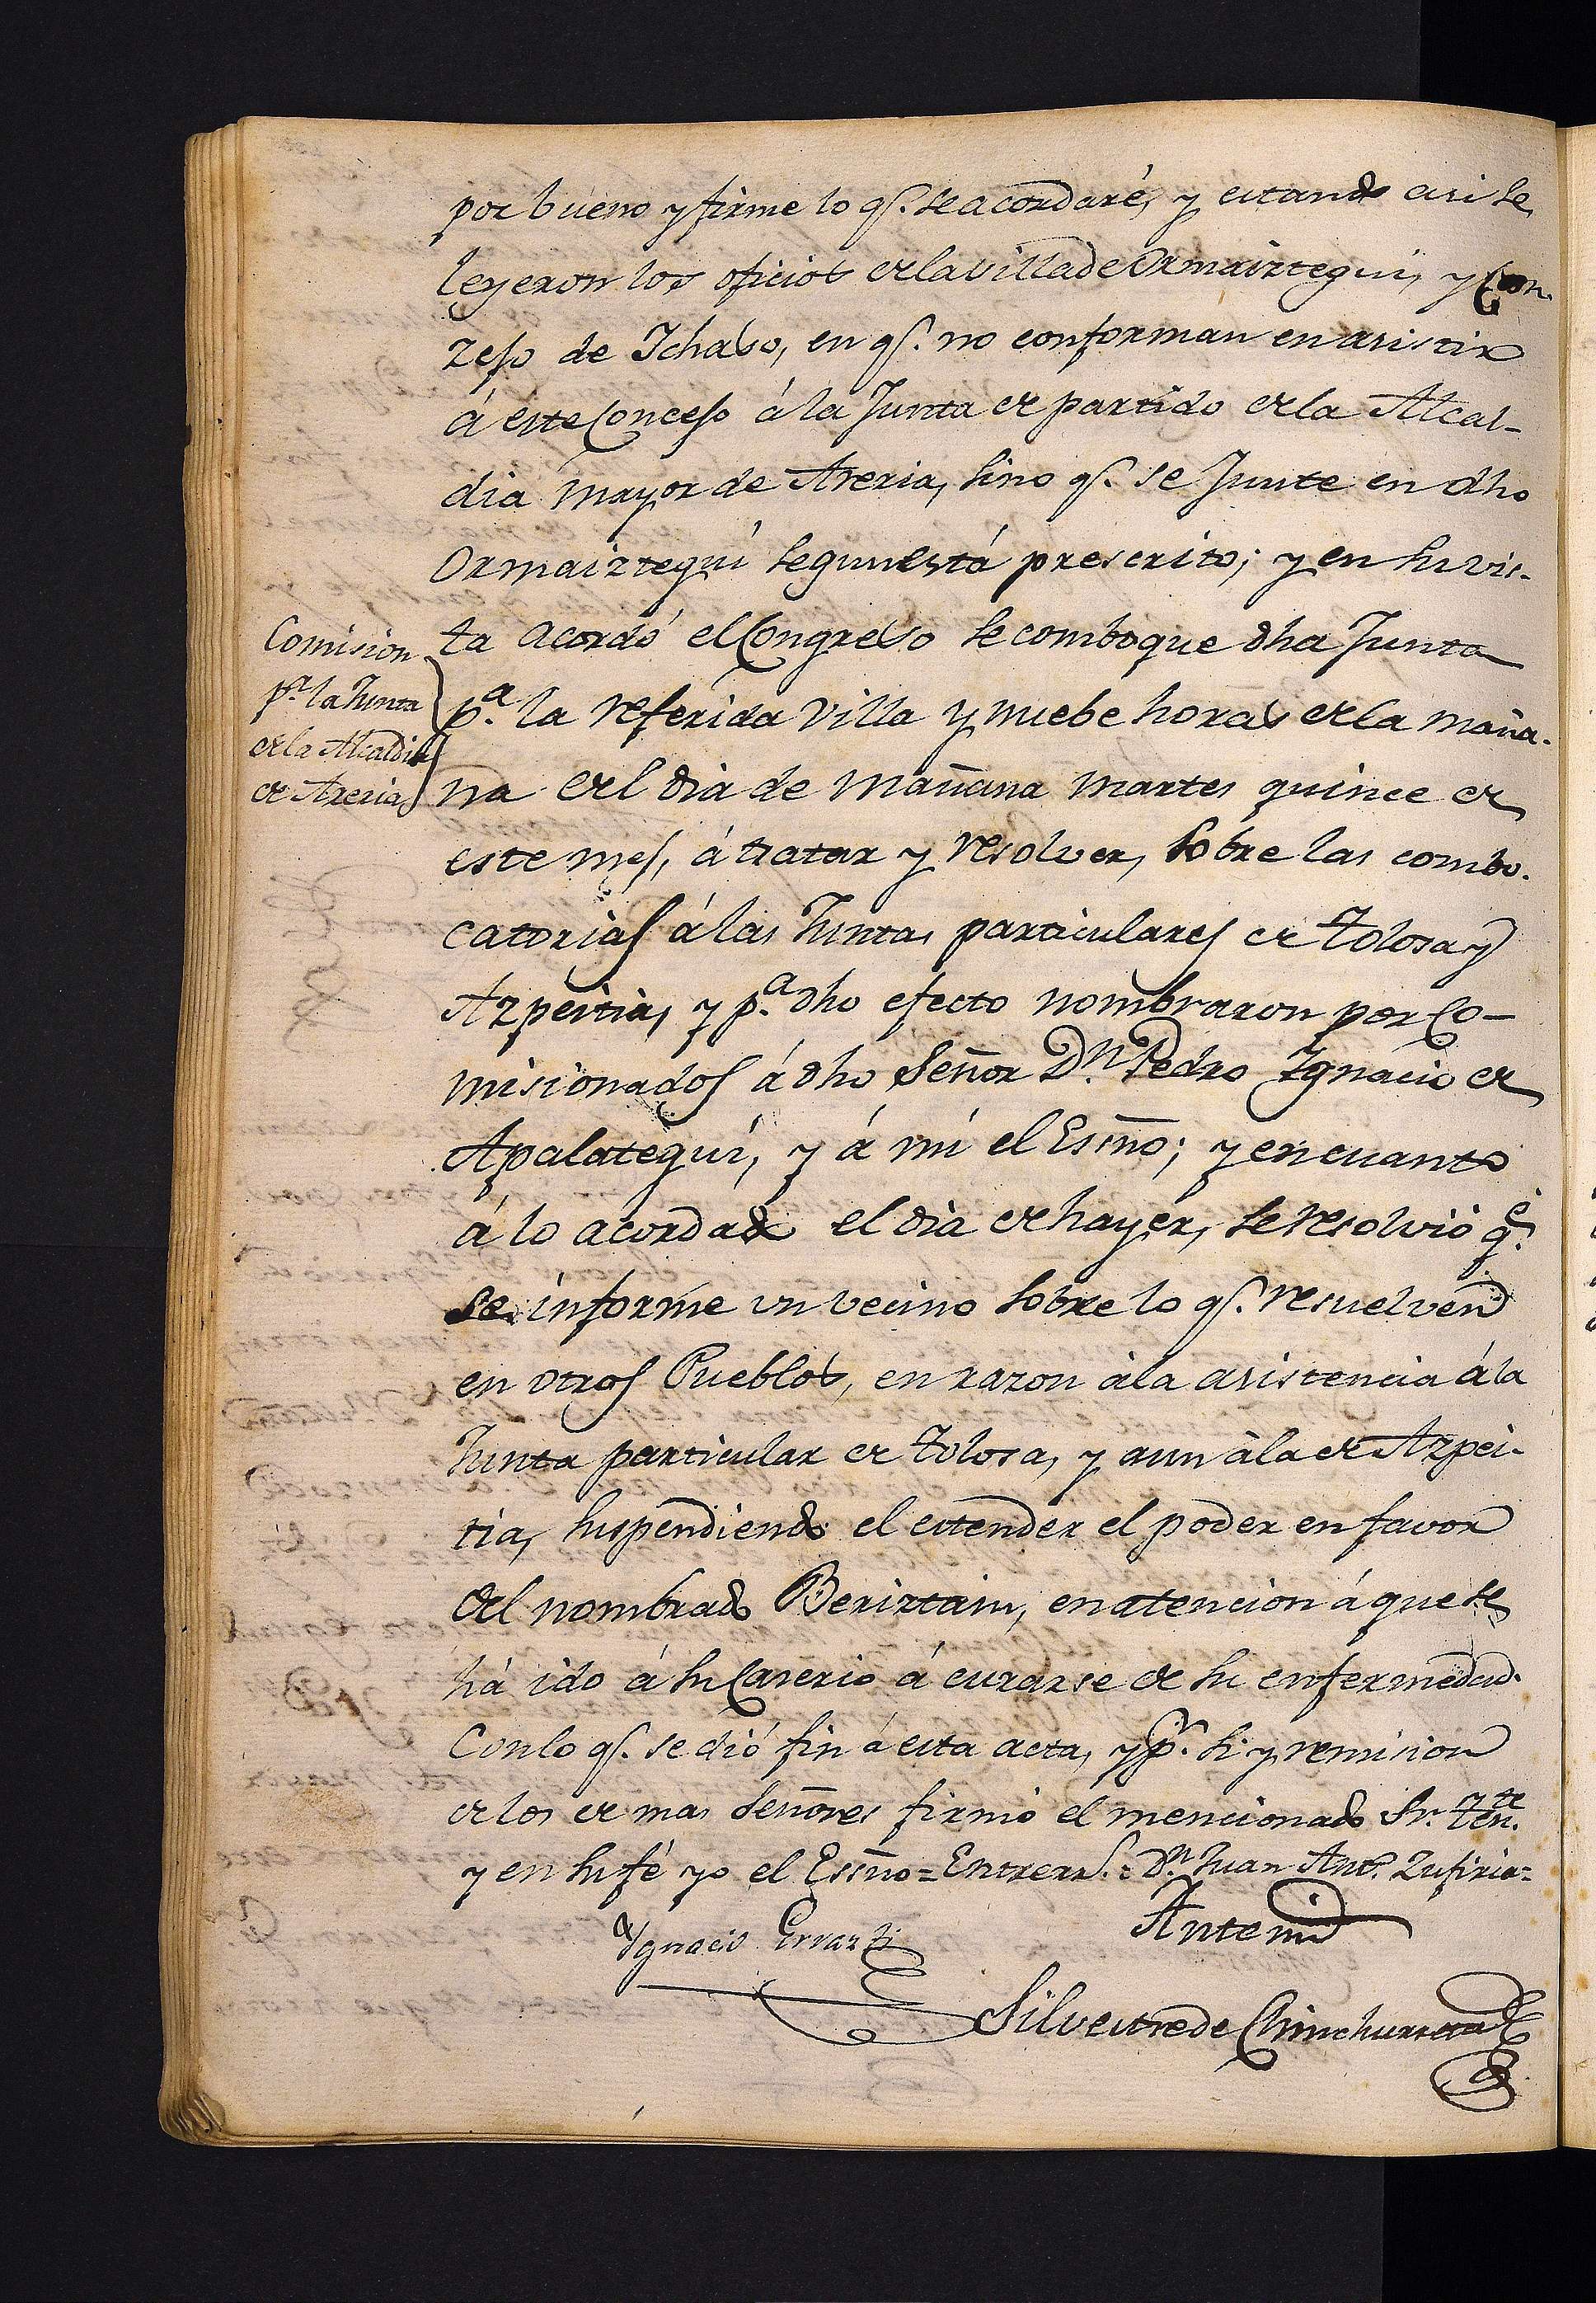 por bueno y firme lo q.e se acordaré, y estando asi se
leyeron los oficios de la villa de Ormaiztegui, y Con-
zejo de Ichaso, en q.e no conforman en asistir
á este Concejo á la Junta de partido de la Alcal-
dia mayor de Areria, sino q.e se Junte en dho
Ormaiztegui segun está prescrito; y en su vis-
ta acordó el Congreso se comboque dha Junta
p.a la referida Villa y nuebe horas de la maña-
na del dia de mañana martes quince de
este mes, á tratar y resolver, sobre las combo-
catorias á las Juntas particulares de Tolosa y
Azpeitia, y p.a dho efecto nombraron por Co-
misionados á dho Señor D.n Pedro Ignacio de
Apalategui, y á mi el Esno; y en cuanto
á lo acordado el dia de hayer, se resolvió q.e
se informe un vecino sobre lo q.e resuelven
en otros Pueblos, en razon á la asistencia á la
Junta particular de Tolosa, y aun á la de Azpei-
tia, suspendiendo el estender el poder en favor
del nombrado Beriztain, en atencion á que se
há ido á su Caserio á curarse de su enfermedad.
Con lo q.e se dió fin á esta acta, y p.r si y remision
de los de mas Señores firmó el mencionado Sr. Ten.te
y en su fé yo el Essno = Entrerr.s = D.n Juan Ant.o Zufiria =
Comision
p.a la Junta
de la Alcaldia
de Areria
Ignacio Errazti
Ante mi
Silvestre de Chinchurreta